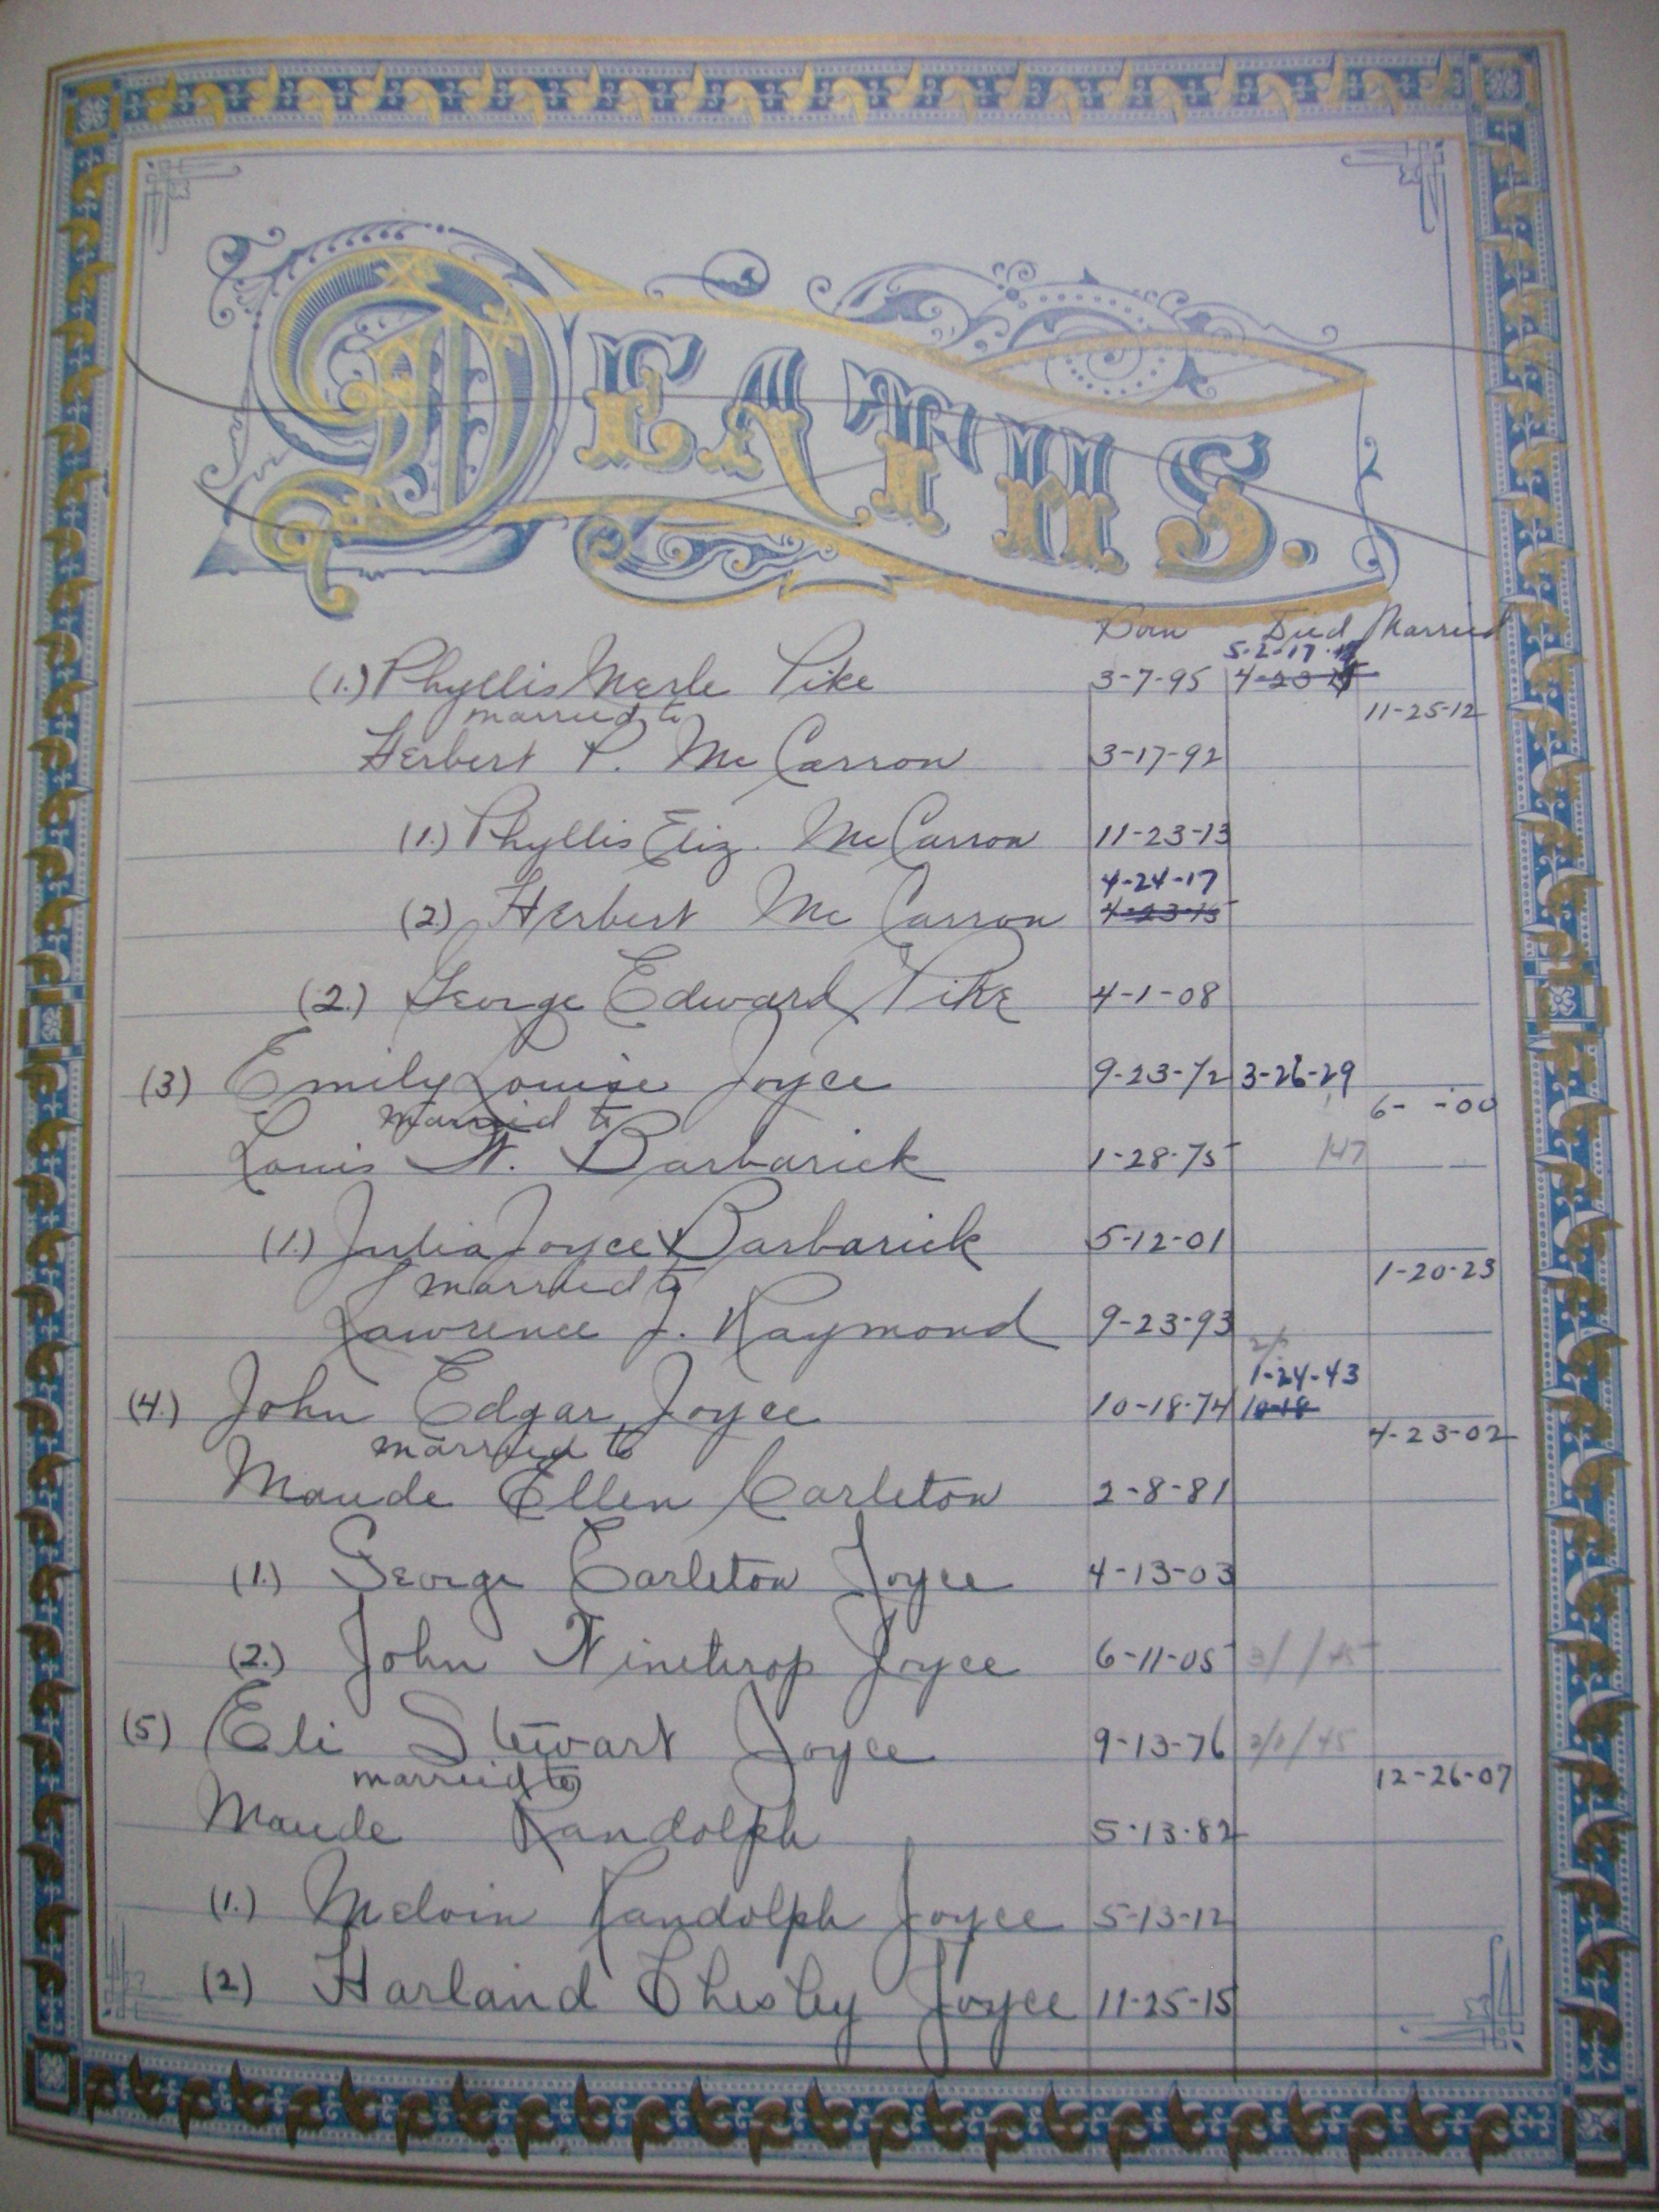 DEATHS.
Born Died Married
5-2-17
(1.) Phyllis Merle Pike 3-7-95 4-23-15
married to 11-25-12
Herbert P. McCarron 3-17-92
(1.) Phyllis Eliz. McCarron 11-23-13
4-24-17
(2.) Herbert McCarron 4-23-15
(2.) George Edward Pike 4-1-08
(3) Emily Louise Joyce 9-23-72 3-26-29
married to 6- -00
Louis W. Barbarick 1-28-75 /47
(1.) Julia Joyce Barbarick 5-12-01
married to 1-20-23
Lawrence J. Raymond 9-23-93
1-24-43
(4.) John Edgar Joyce 10-18-74 10-18
married to 4-23-02
Maude Ellen Carleton 2-8-81
(1.) George Carleton Joyce 4-13-03
(2.) John Winthrop Joyce 6-11-05 3/ /45
(5) Eli Stewart Joyce 9-13-76 2/2/45
married to 12-26-07
Maude Randolph 5-13-82
(1.) Melvin Randolph Joyce 5-13-12
(2) Harland Chesley Joyce 11-25-15